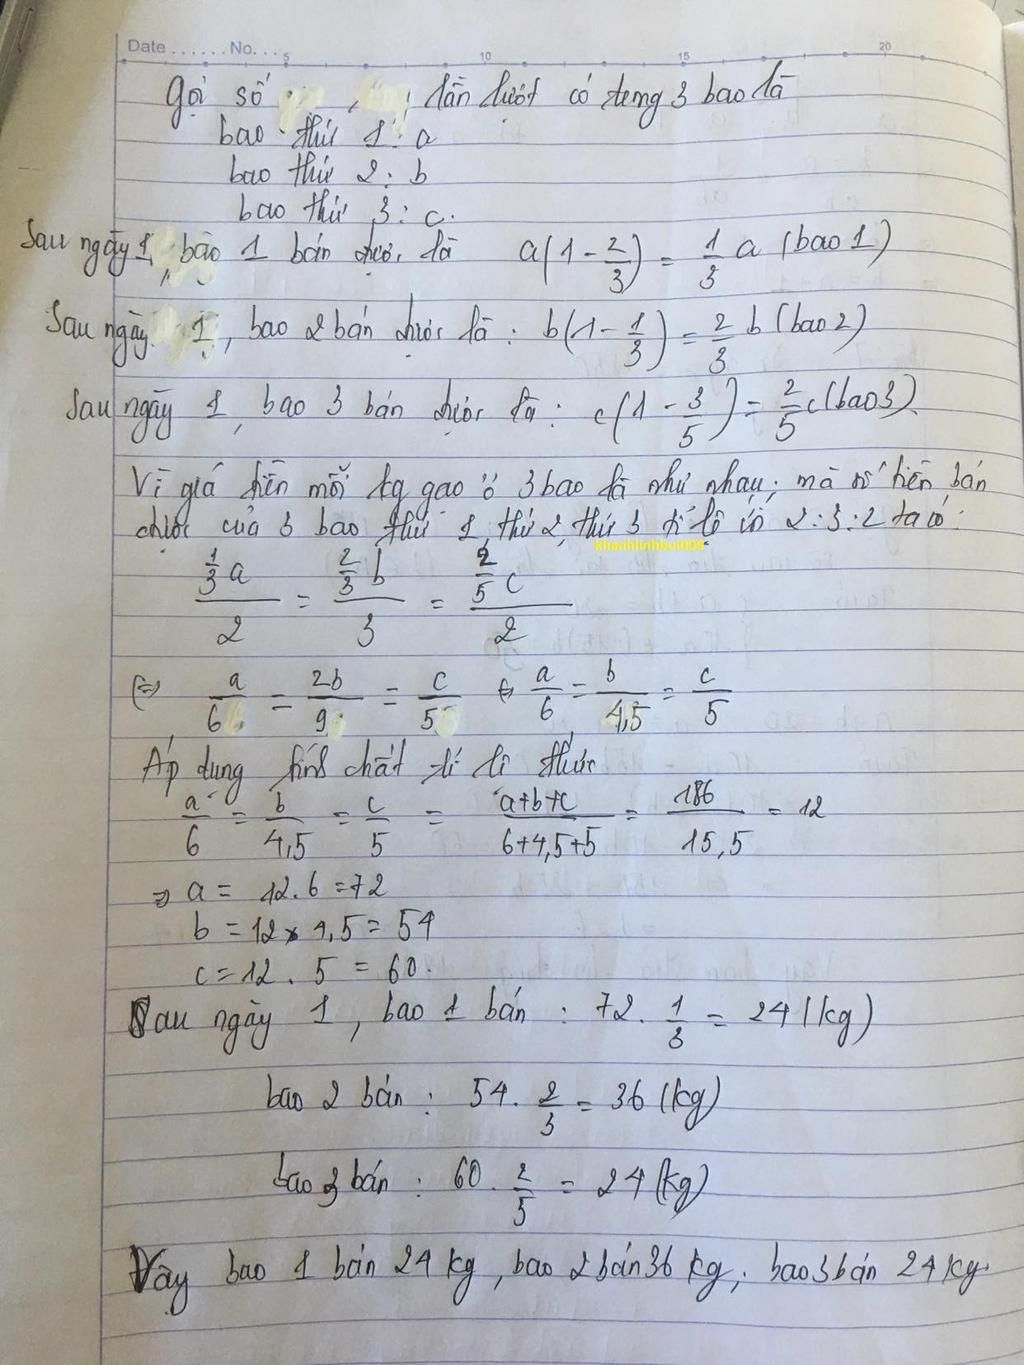 Date ...... No. ...
5 10 15 20
Gọi số lần lượt có trong 3 bao là
bao thứ 1: a
bao thứ 2: b
bao thứ 3: c.
Sau ngày 1, bao 1 bán được là a(1 - 2/3) = 1/3 a (bao 1)
Sau ngày 1, bao 2 bán được là: b(1 - 1/3) = 2/3 b (bao 2)
Sau ngày 1, bao 3 bán được là: c(1 - 3/5) = 2/5 c (bao 3).
Vì giá tiền mỗi kg gạo ở 3 bao là như nhau; mà số tiền bán
được của 3 bao thứ 1, thứ 2, thứ 3 tỉ lệ với 2:3:2 ta có:
khanhlinhbui009
(1/3 a)/2 = (2/3 b)/3 = (2/5 c)/2
(=) a/6 = 2b/9 = c/5 (=) a/6 = b/4,5 = c/5
Áp dụng tính chất tỉ lệ thức
a/6 = b/4,5 = c/5 = (a+b+c)/(6+4,5+5) = 186/15,5 = 12
=> a = 12.6 = 72
b = 12 x 4,5 = 54
c = 12 . 5 = 60.
Sau ngày 1, bao 1 bán: 72. 1/3 = 24 (kg)
bao 2 bán: 54. 2/3 = 36 (kg)
bao 3 bán: 60. 2/5 = 24 (kg)
Vậy bao 1 bán 24 kg, bao 2 bán 36 kg, bao 3 bán 24 kg.